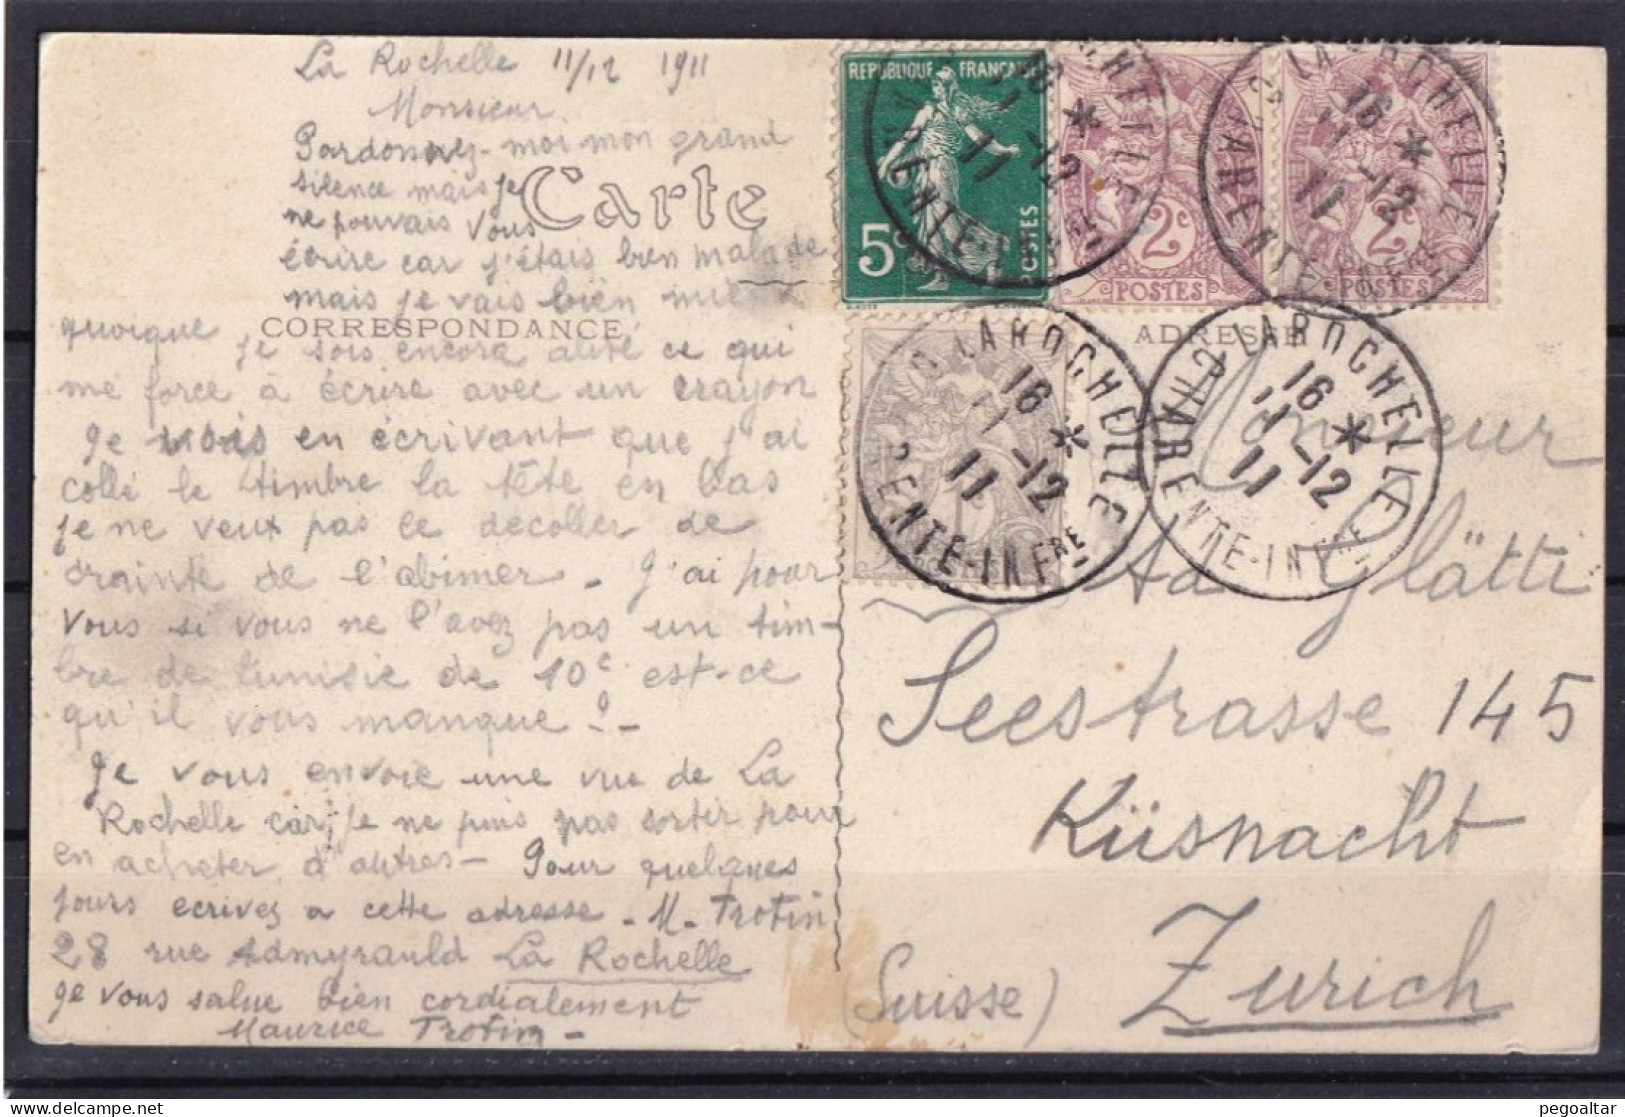 La Rochelle 11/12 1911
Monsieur
Pardonnez-moi mon grand
silence mais je
ne pouvais vous
écrire car j'étais bien malade
mais je vais bien mieux
quoique je sois encore alité ce qui
me force à écrire avec un crayon
Je vois en écrivant que j'ai
collé le timbre la tête en bas
je ne veux pas le decoller de
crainte de l'abimer - J'ai pour
vous si vous ne l'avez pas un tim-
bre de tunisie de 10c est-ce
qu'il vous manque? -
Je vous envoie une vue de La
Rochelle car je ne puis pas sortir pour
en acheter d'autres - Pour quelques
jours ecrivez a cette adresse - M. Trotin
28 rue Admyrauld La Rochelle
Je vous salue bien cordialement
Maurice Trotin -
Carte
CORRESPONDANCE
ADRESSE
REPUBLIQUE FRANÇAISE
5c
POSTES
2c
POSTES
2c
POSTES
LA ROCHELLE
16 *
11-12
11
CHARENTE-INFRE
LA ROCHELLE
16 *
11-12
11
CHARENTE-INFRE
LA ROCHELLE
16 *
11-12
11
CHARENTE-INFRE
LA ROCHELLE
16 *
11-12
11
CHARENTE-INFRE
Monsieur
Ad Glätti
Seestrasse 145
Küsnacht
Zurich
(Suisse)
pegoaltar